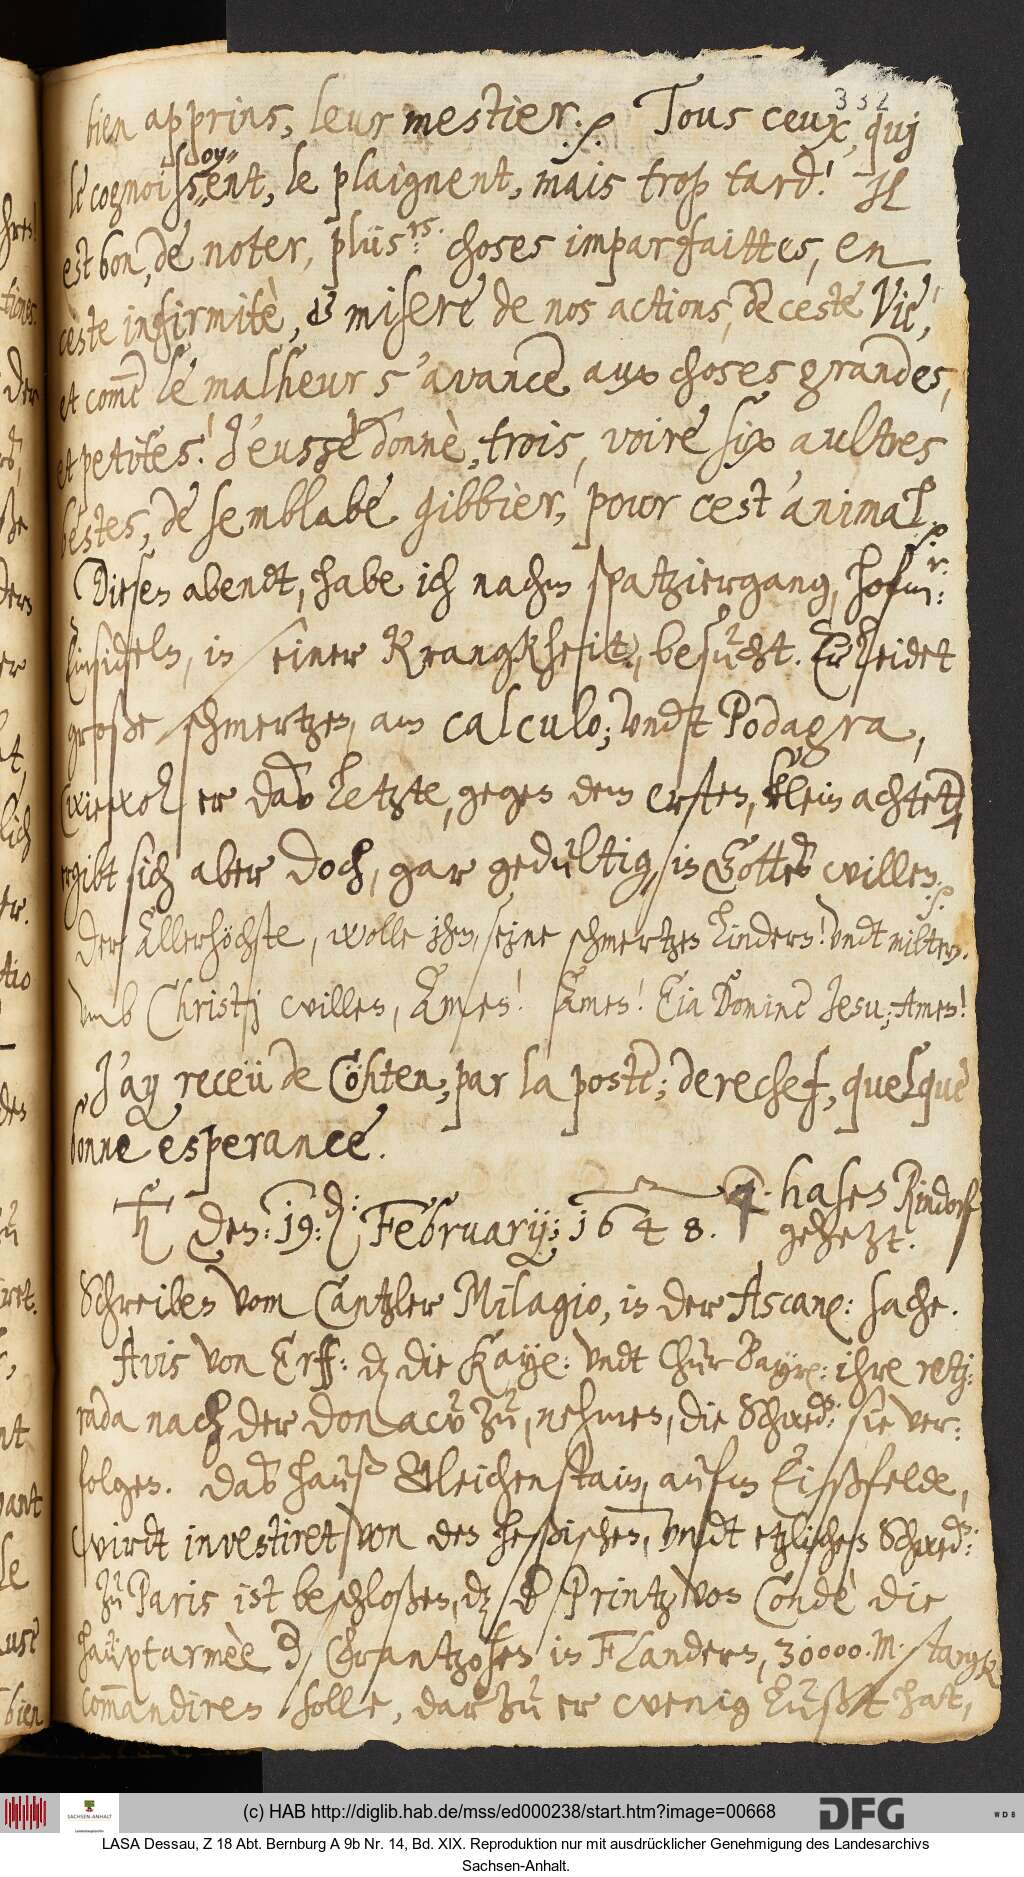 332
bien apprins, leur mestier. Tous ceux, quj
le cognoissent, le plaignent, mais trop tard! Il
oy
est bon, de noter, plüs:rs choses imparfaittes, en
ceste infirmitè, & misere de nos actions, de ceste Vie,
et comẽ le malheur s'avance aux choses grandes,
et petites! J'eusse donnè, trois, voire six aultres
bestes, de semblabe gibbier, pour cest animal.
Diesen abendt, habe ich nachm spatziergang, hofm:r
Einsideln, in seiner Krangkheit, besücht. Er leidet
große schmertzen, am calculo; undt Podagra,
wiewol er daß letzte, gegen dem ersten, klein achtet,
ergibt sich aber doch, gar gedültig, in Gottes willen.
Der Allerhöchste, wolle ihm, seine schmertzen lindern! undt miltern.
umb Christj willen, Amen! Amen! Eia Domine Jesu; Amen!
J'ay receü de Cöhten, par la poste; derechef, quelque
bonne esperance.
♄ den: 19: d: Februarij; 1648.
4. hasen Rindorf
gehezt.
Schreiben vom Cantzler Milagio, in der Ascan: sache.
Avis von Erff: dz die Kay: undt Chur Bayr: ihre retj:
rada nach der Donaw zü, nehmen, die Schwed: sie ver:
folgen. Daß hauß Gleichenstain, aufm Eißfelde,
wirdt investiret von den heßischen, undt etzlichen Schwed:
Zü Paris ist beschloßen, dz der Printz von Condè die
hauptarmèe der Frantzosen in Flandern, 30000. M. stangk
com̃andiren solle, darzü er wenig lust hat,
(c) HAB http://diglib.hab.de/mss/ed000238/start.htm?image=00668
SACHSEN-ANHALT
DFG
WDB
LASA Dessau, Z 18 Abt. Bernburg A 9b Nr. 14, Bd. XIX. Reproduktion nur mit ausdrücklicher Genehmigung des Landesarchivs
Sachsen-Anhalt.